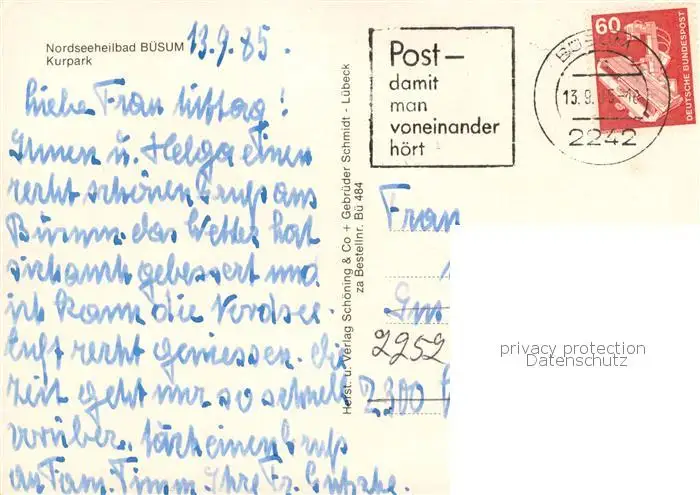 Nordseeheilbad BÜSUM
Kurpark
13.9.85.
Liebe Frau
Ihnen u. Helga einen
recht schönen Gruß aus
Büsum, das Wetter hat
sich auch gebessert und
ich kann die Nordsee-
luft recht geniessen. Die
Zeit geht nur so schnell
vorüber. einen Gruß
an Fam. Timm. Ihre Fr.
Horst. u. Verlag Schöning & Co + Gebrüder Schmidt - Lübeck
za Bestellnr. Bü 484
Post –
damit
man
voneinander
hört
13.9.
2242
60
DEUTSCHE BUNDESPOST
Frau
2252
2300
privacy protection
Datenschutz